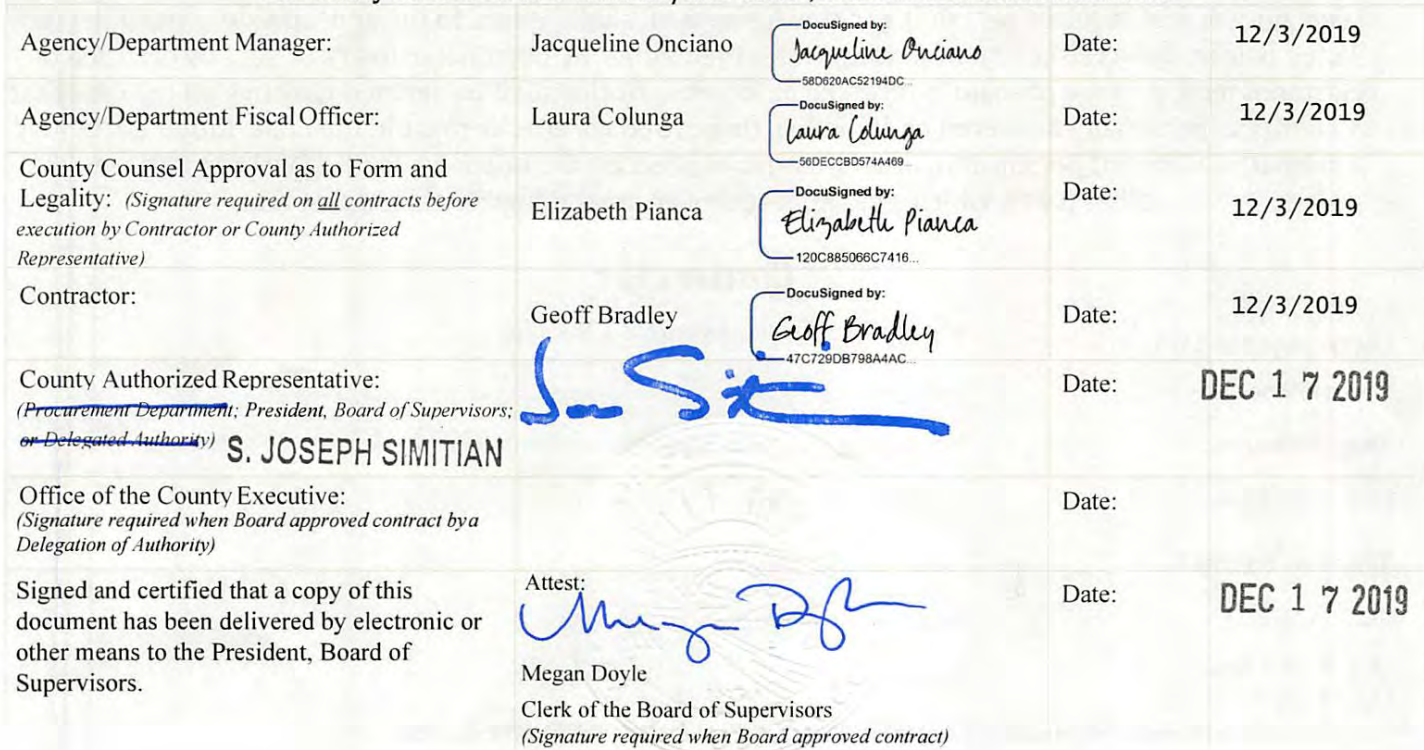 Agency/Department Manager:
Jacqueline Onciano
DocuSigned by:
Jacqueline Onciano
58D620AC52194DC...
Date:
12/3/2019
Agency/Department Fiscal Officer:
Laura Colunga
DocuSigned by:
Laura Colunga
56DECCBD574A469...
Date:
12/3/2019
County Counsel Approval as to Form and
Legality: (Signature required on all contracts before
execution by Contractor or County Authorized
Representative)
Elizabeth Pianca
DocuSigned by:
Elizabeth Pianca
120C885066C7416...
Date:
12/3/2019
Contractor:
Geoff Bradley
DocuSigned by:
Geoff Bradley
47C729DB798A4AC...
Date:
12/3/2019
County Authorized Representative:
(Procurement Department; President, Board of Supervisors;
or Delegated Authority)
S. JOSEPH SIMITIAN
Date:
DEC 17 2019
Office of the County Executive:
(Signature required when Board approved contract by a
Delegation of Authority)
Date:
Signed and certified that a copy of this
document has been delivered by electronic or
other means to the President, Board of
Supervisors.
Attest:
Megan Doyle
Clerk of the Board of Supervisors
(Signature required when Board approved contract)
Date:
DEC 17 2019